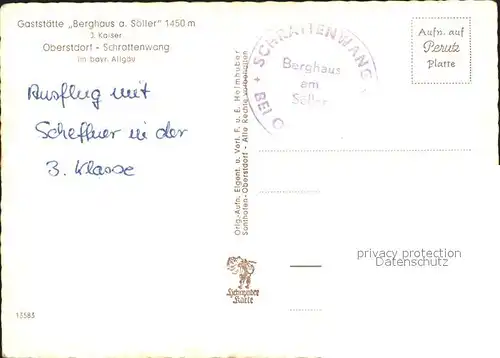 Gaststätte „Berghaus a. Söller" 1450 m
J. Kaiser
Oberstdorf - Schrattenwang
im bayr. Allgäu
Ausflug mit
Scheffner in der
3. Klasse
13583
Orig.-Aufn. Eigent. u. Verl. F. u. E. Heimhuber
Sonthofen-Oberstdorf - Alle Rechte vorbehalten
+ SCHRATTENWANG
BEI O
Berghaus
am
Söller
Aufn. auf
Perutz
Platte
Heimhuber
Karte
privacy protection
Datenschutz